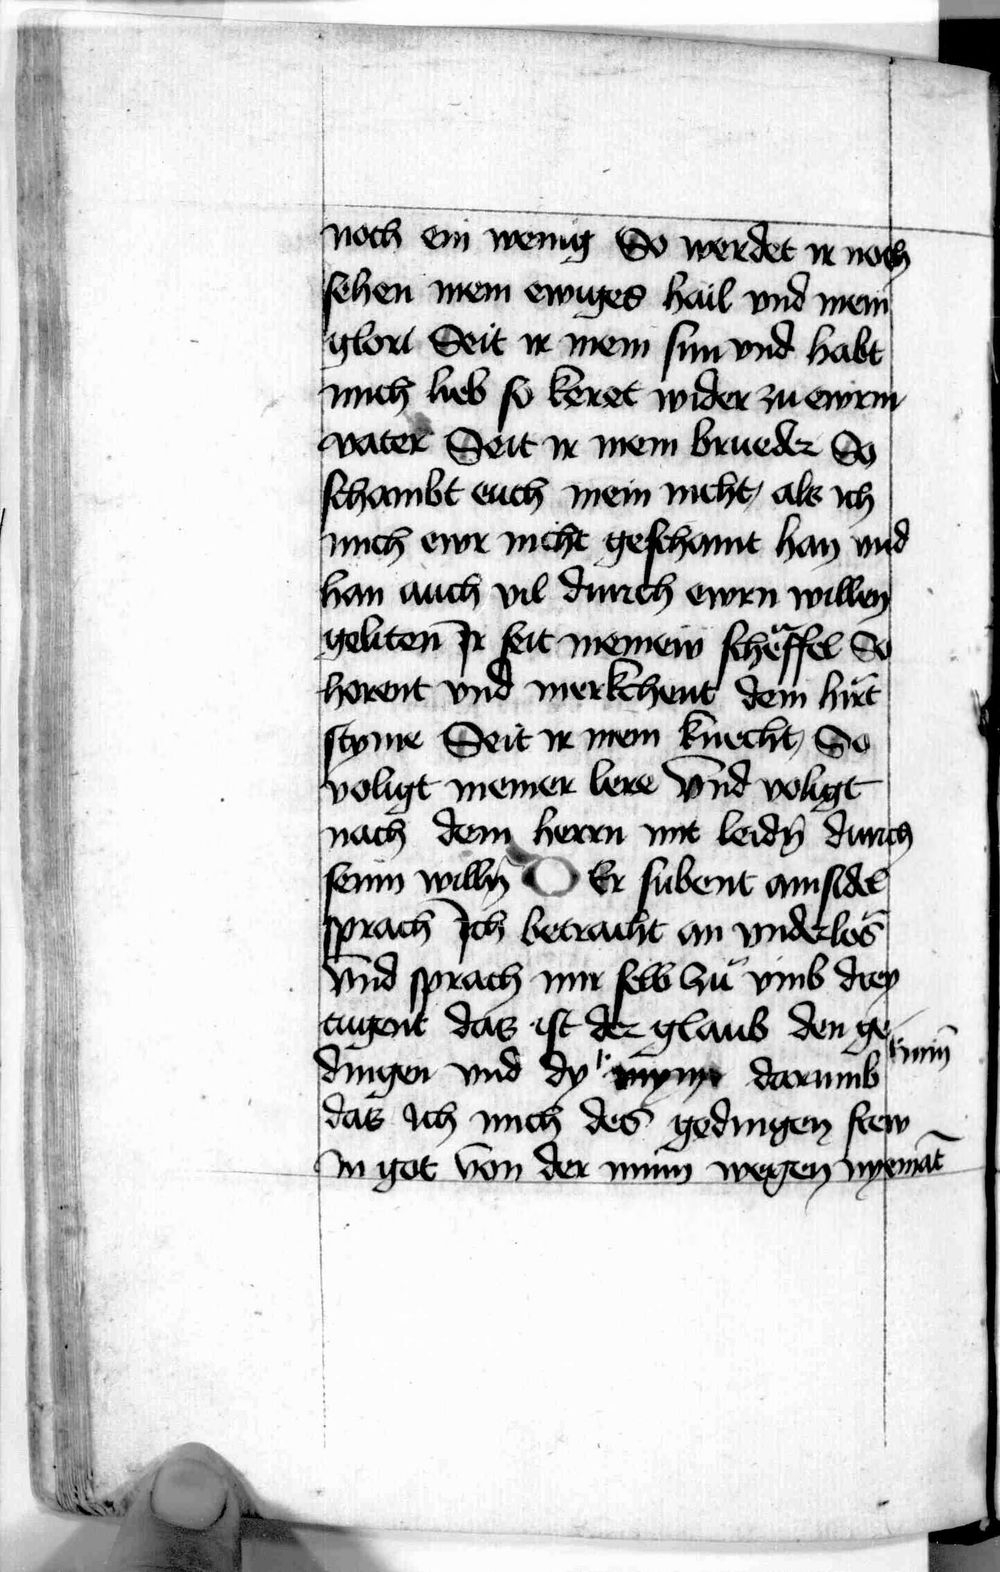 noch ein wenig So werdet ir noch
sehen mein ewiges hail vnd mein
glori Seit ir mein sun vnd habt
mich lieb so keret wider zu ewrm
vater Seit ir mein bruedr So
schambt euch mein nicht als ich
mich ewr nicht geschamt han vnd
han auch vil durch ewrn willen
geliten Ir seit meinew scheffel So
horent vnd merkchent dem hirt
styme Seit ir mein knecht So
voligt meiner lere Vnd voligt
nach dem herrn mit leidn̄ durch
seinn willn̄ Er subent ainsidel
sprach Ich betracht an vnderlos
Vnd sprach mir selb zu vmb drey
tugent das ist der glaub den ge
dingen vnd dy minn̄ darumb
das Ich mich des gedingen frew
in got von der minn wegen nyemāt